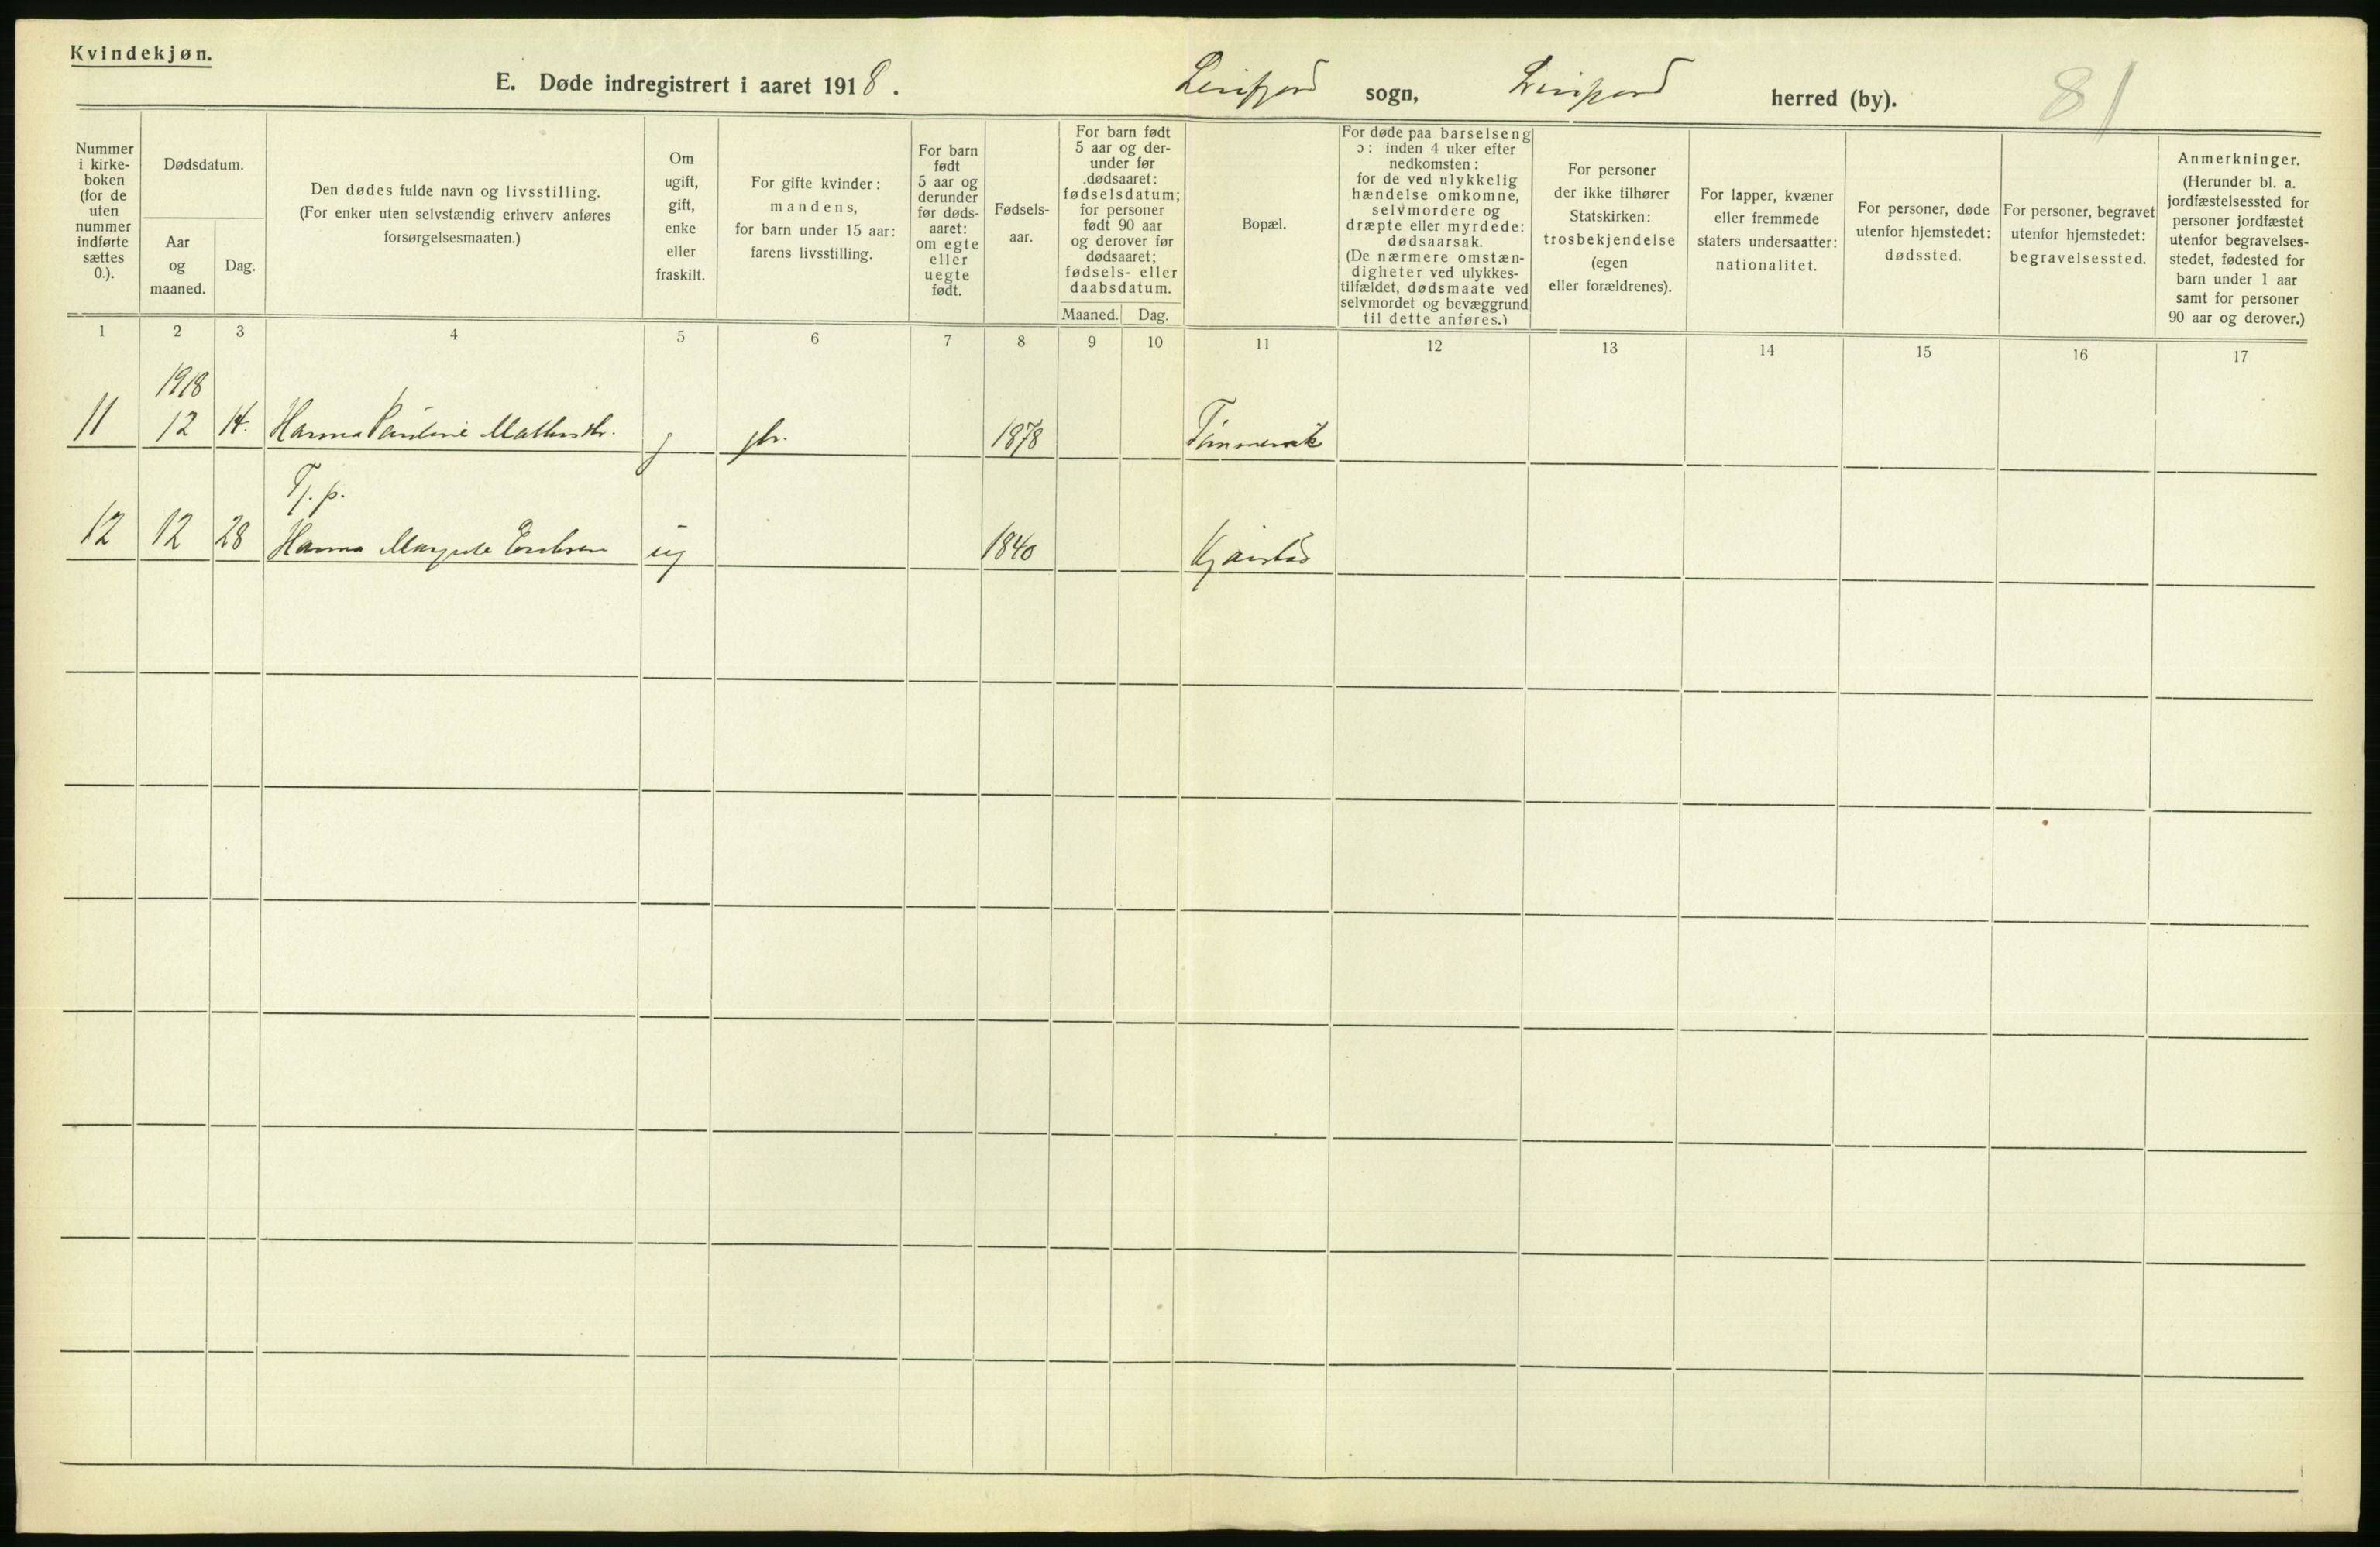 Kvindekjøn.
E. Døde indregistrert i aaret 1918. sogn, herred (by). 81
Nummer
i kirke-
boken
(for de
uten
nummer
indførte
sættes
0.).
Dødsdatum.
Aar
og
maaned.
Dag.
Den dødes fulde navn og livsstilling.
(For enker uten selvstændig erhverv anføres
forsørgelsesmaaten.)
Om
ugift,
gift,
enke
eller
fraskilt.
For gifte kvinder:
mandens,
for barn under 15 aar:
farens livsstilling.
For barn
født
5 aar og
derunder
før døds-
aaret:
om egte
eller
uegte
født.
Fødsels-
aar.
For barn født
5 aar og der-
under før
dødsaaret:
fødselsdatum;
for personer
født 90 aar
og derover før
dødsaaret;
fødsels- eller
daabsdatum.
Maaned. Dag.
Bopæl.
For døde paa barselseng
ɔ: inden 4 uker efter
nedkomsten:
for de ved ulykkelig
hændelse omkomne,
selvmordere og
dræpte eller myrdede:
dødsaarsak.
(De nærmere omstæn-
digheter ved ulykkes-
tilfældet, dødsmaate ved
selvmordet og bevæggrund
til dette anføres.)
For personer
der ikke tilhører
Statskirken:
trosbekjendelse
(egen
eller forældrenes).
For lapper, kvæner
eller fremmede
staters undersaatter:
nationalitet.
For personer, døde
utenfor hjemstedet:
dødssted.
For personer, begravet
utenfor hjemstedet:
begravelsessted.
Anmerkninger.
(Herunder bl. a.
jordfæstelsessted for
personer jordfæstet
utenfor begravelses-
stedet, fødested for
barn under 1 aar
samt for personer
90 aar og derover.)
1 2 3 4 5 6 7 8 9 10 11 12 13 14 15 16 17
1918
11 12 14. Hanna g 1878
T.j. p.
12 12 28 Hanna ug 1840